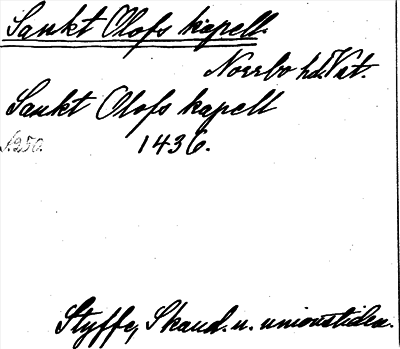 Sankt Olofs kapell.
Norrbo hd. Vät.
Sankt Olofs kapell
s. 250. 1436.
Styffe, Skand. u. unionstiden.